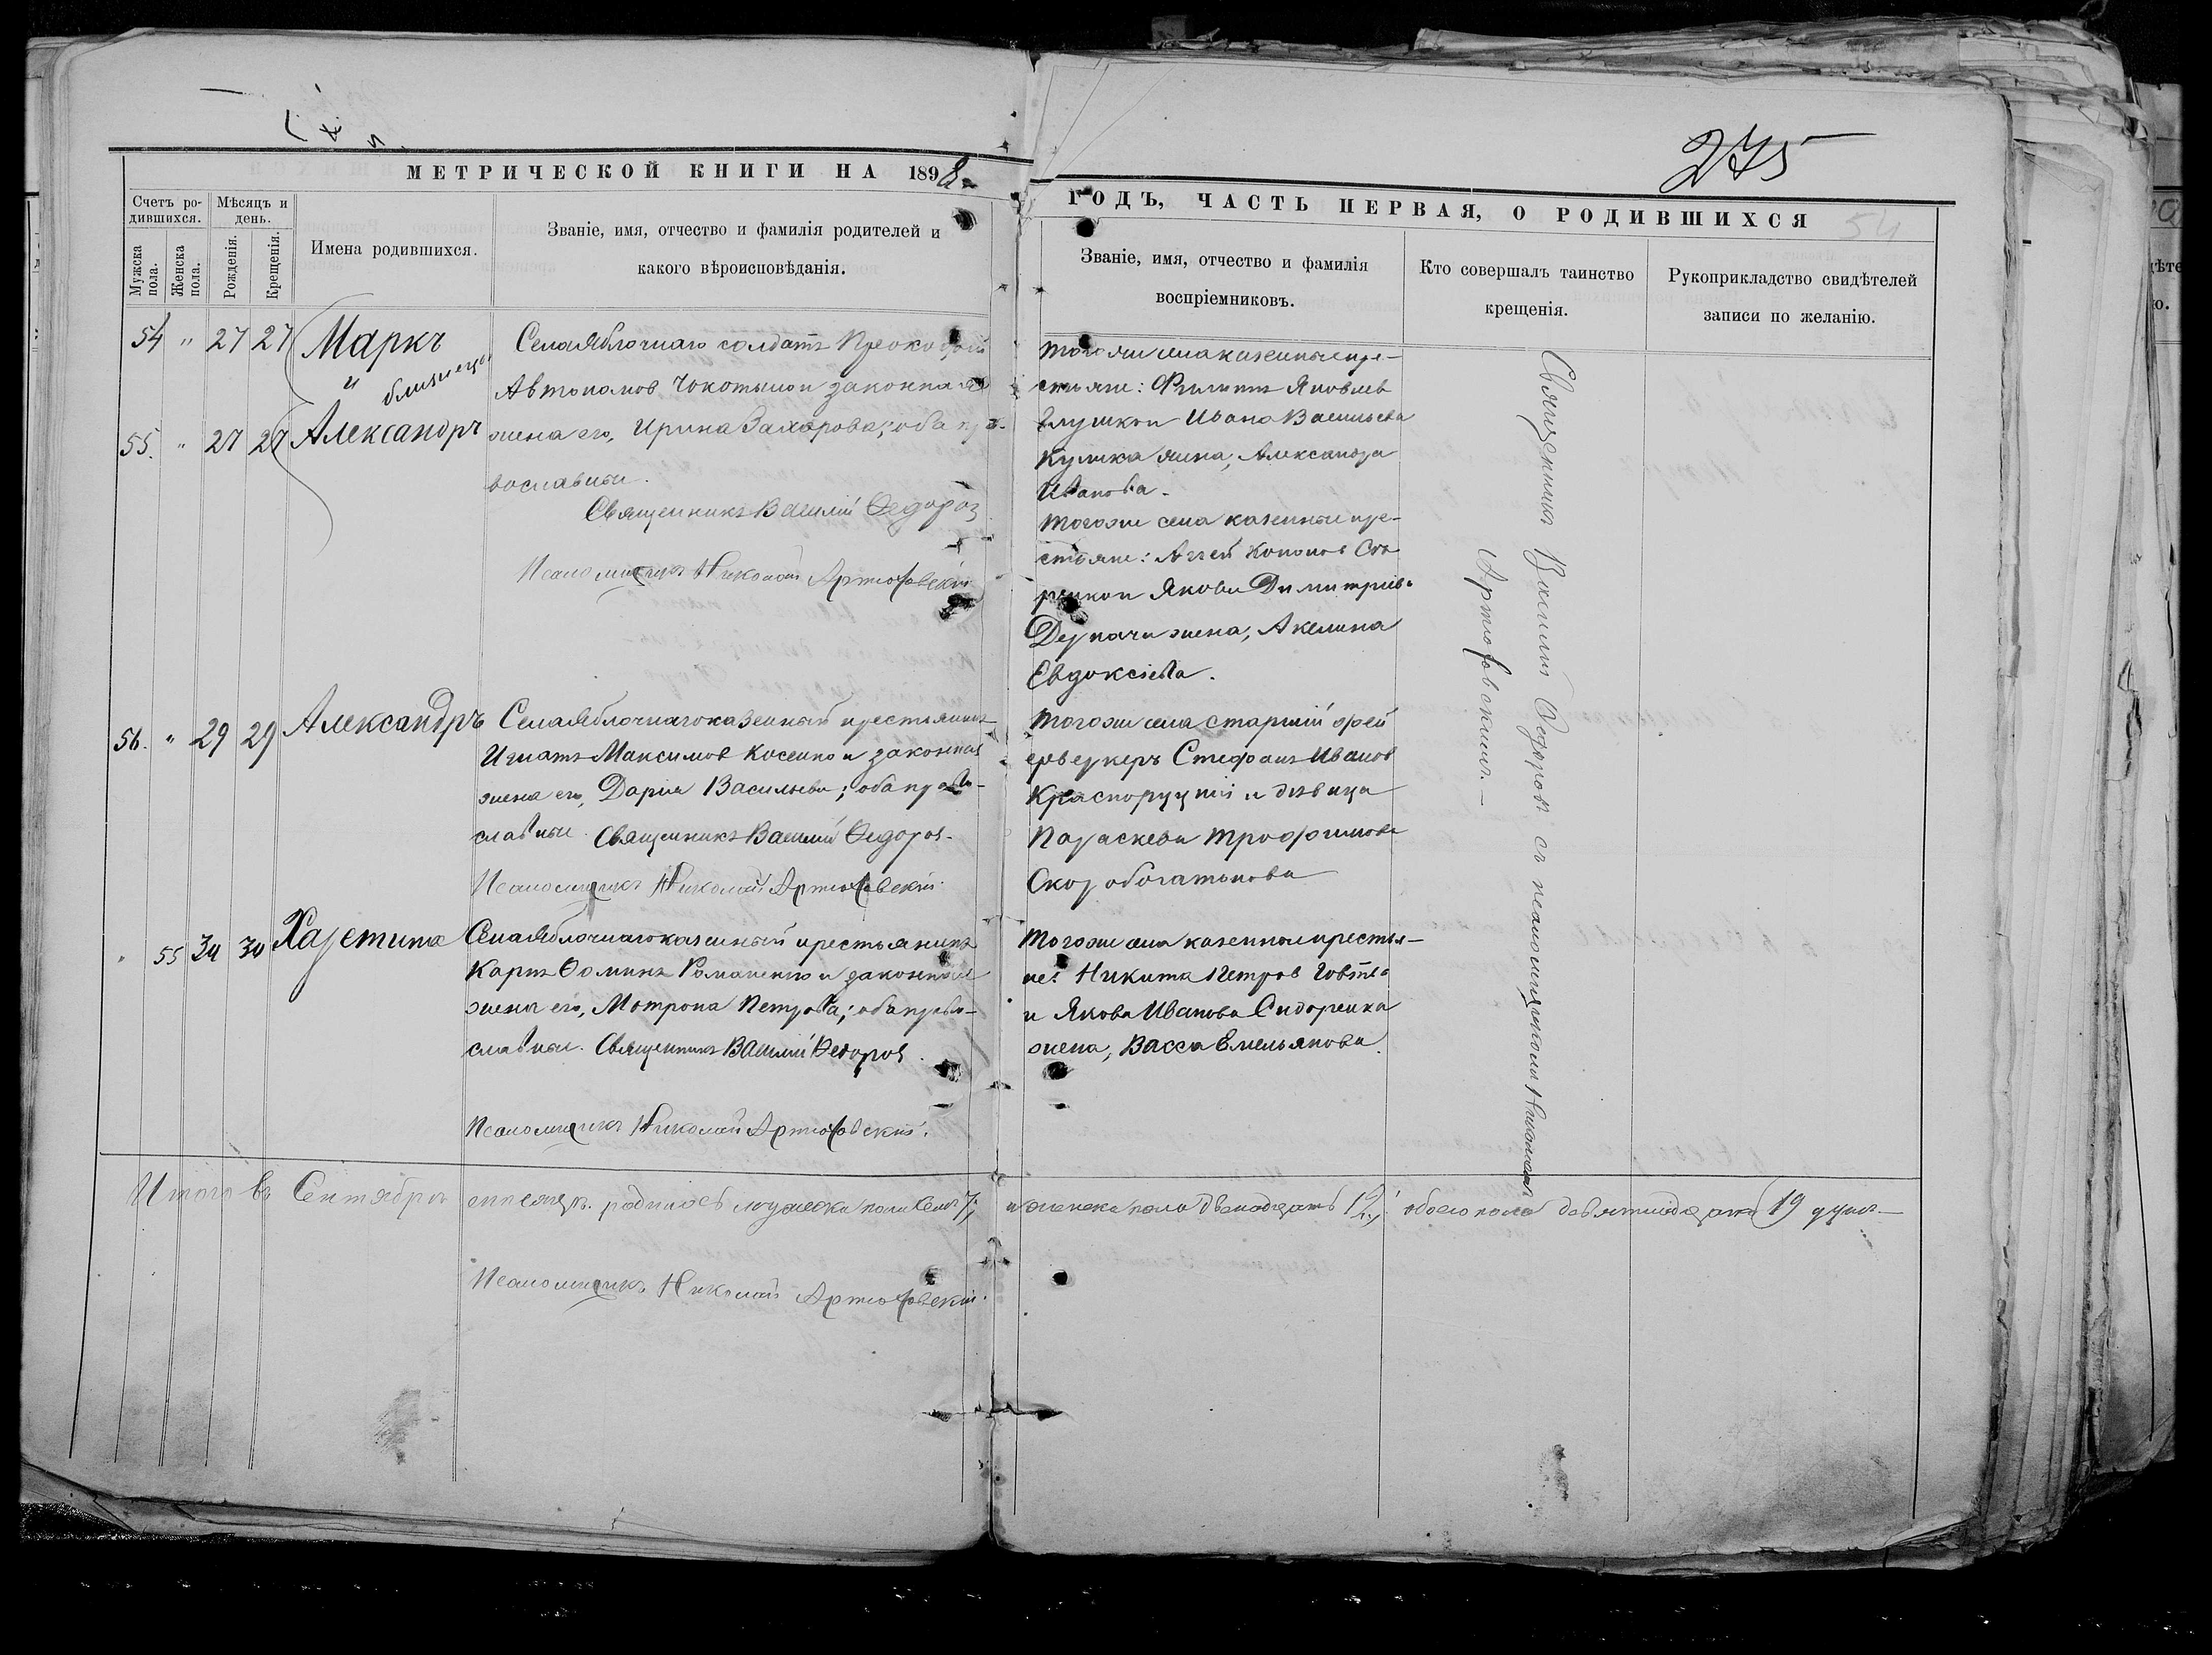 275
МЕТРИЧЕСКОЙ КНИГИ НА 1898
ГОДЪ, ЧАСТЬ ПЕРВАЯ, О РОДИВШИХСЯ
54
Счетъ ро-
дившихся.
Мѣсяцъ и
день.
Мужска
пола.
Женска
пола.
Рожденія.
Крещенія.
Имена родившихся.
Званіе, имя, отчество и фамилія родителей и
какого вѣроисповѣданія.
Званіе, имя, отчество и фамилія
воспріемниковъ.
Кто совершалъ таинство
крещенія.
Рукоприкладство свидѣтелей
записи по желанію.
54 " 27 27 Маркъ
и близнецы
55. " 27 27 Александръ
Села Яблочнаго солдатъ Прокофій
Автономов и законная
жена его, Ирина Захарова; оба пра-
вославные.
Священникъ Василій Ѳедоров
Псаломщикъ Николай Артюховскій
Того же села казенные кре-
стьяне: Филиппъ Яковлев
Глушко и Ивана Васильева
Кулика жена, Александра
Иванова.
Того же села казенные кре-
стьяне: Аггей Кононов
и Якова Димитріева
Деркача жена, Акелина
Евдоксіева.
56. " 29 29 Александръ
Села Яблочнаго казенный крестьянинъ
Игнатъ Максимов Косенко и законная
жена его, Дарія Васильева; оба право-
славные. Священникъ Василій Ѳедоров.
Псаломщикъ Николай Артюховскій.
Того же села старшій фей
ерверкеръ Стефанъ Иванов
Красноруцкій и дѣвица
Параскева Трофимова
Скоробогатькова
" 55 30 30 Харетина
Села Яблочнаго казенный крестьянинъ
Карпъ Ѳоминъ Романенко и законная
жена его, Мотрона Петрова; оба право-
славные. Священникъ Василій Ѳедоров.
Псаломщикъ Николай Артюховскій.
Того же села казенные крестья-
не: Никита Петров
и Якова Иванова Сидоренка
жена, Васса Емельянова.
Священникъ Василій Ѳедоровъ съ псаломщикомъ Николаемъ
Артюховскимъ.—
Итого въ Сентябрѣ мѣсяцѣ родилось мужеска пола семь 7, и женска пола двенадцать 12, обоего пола девятнадцать 19 душъ.—
Псаломщикъ Николай Артюховскій.